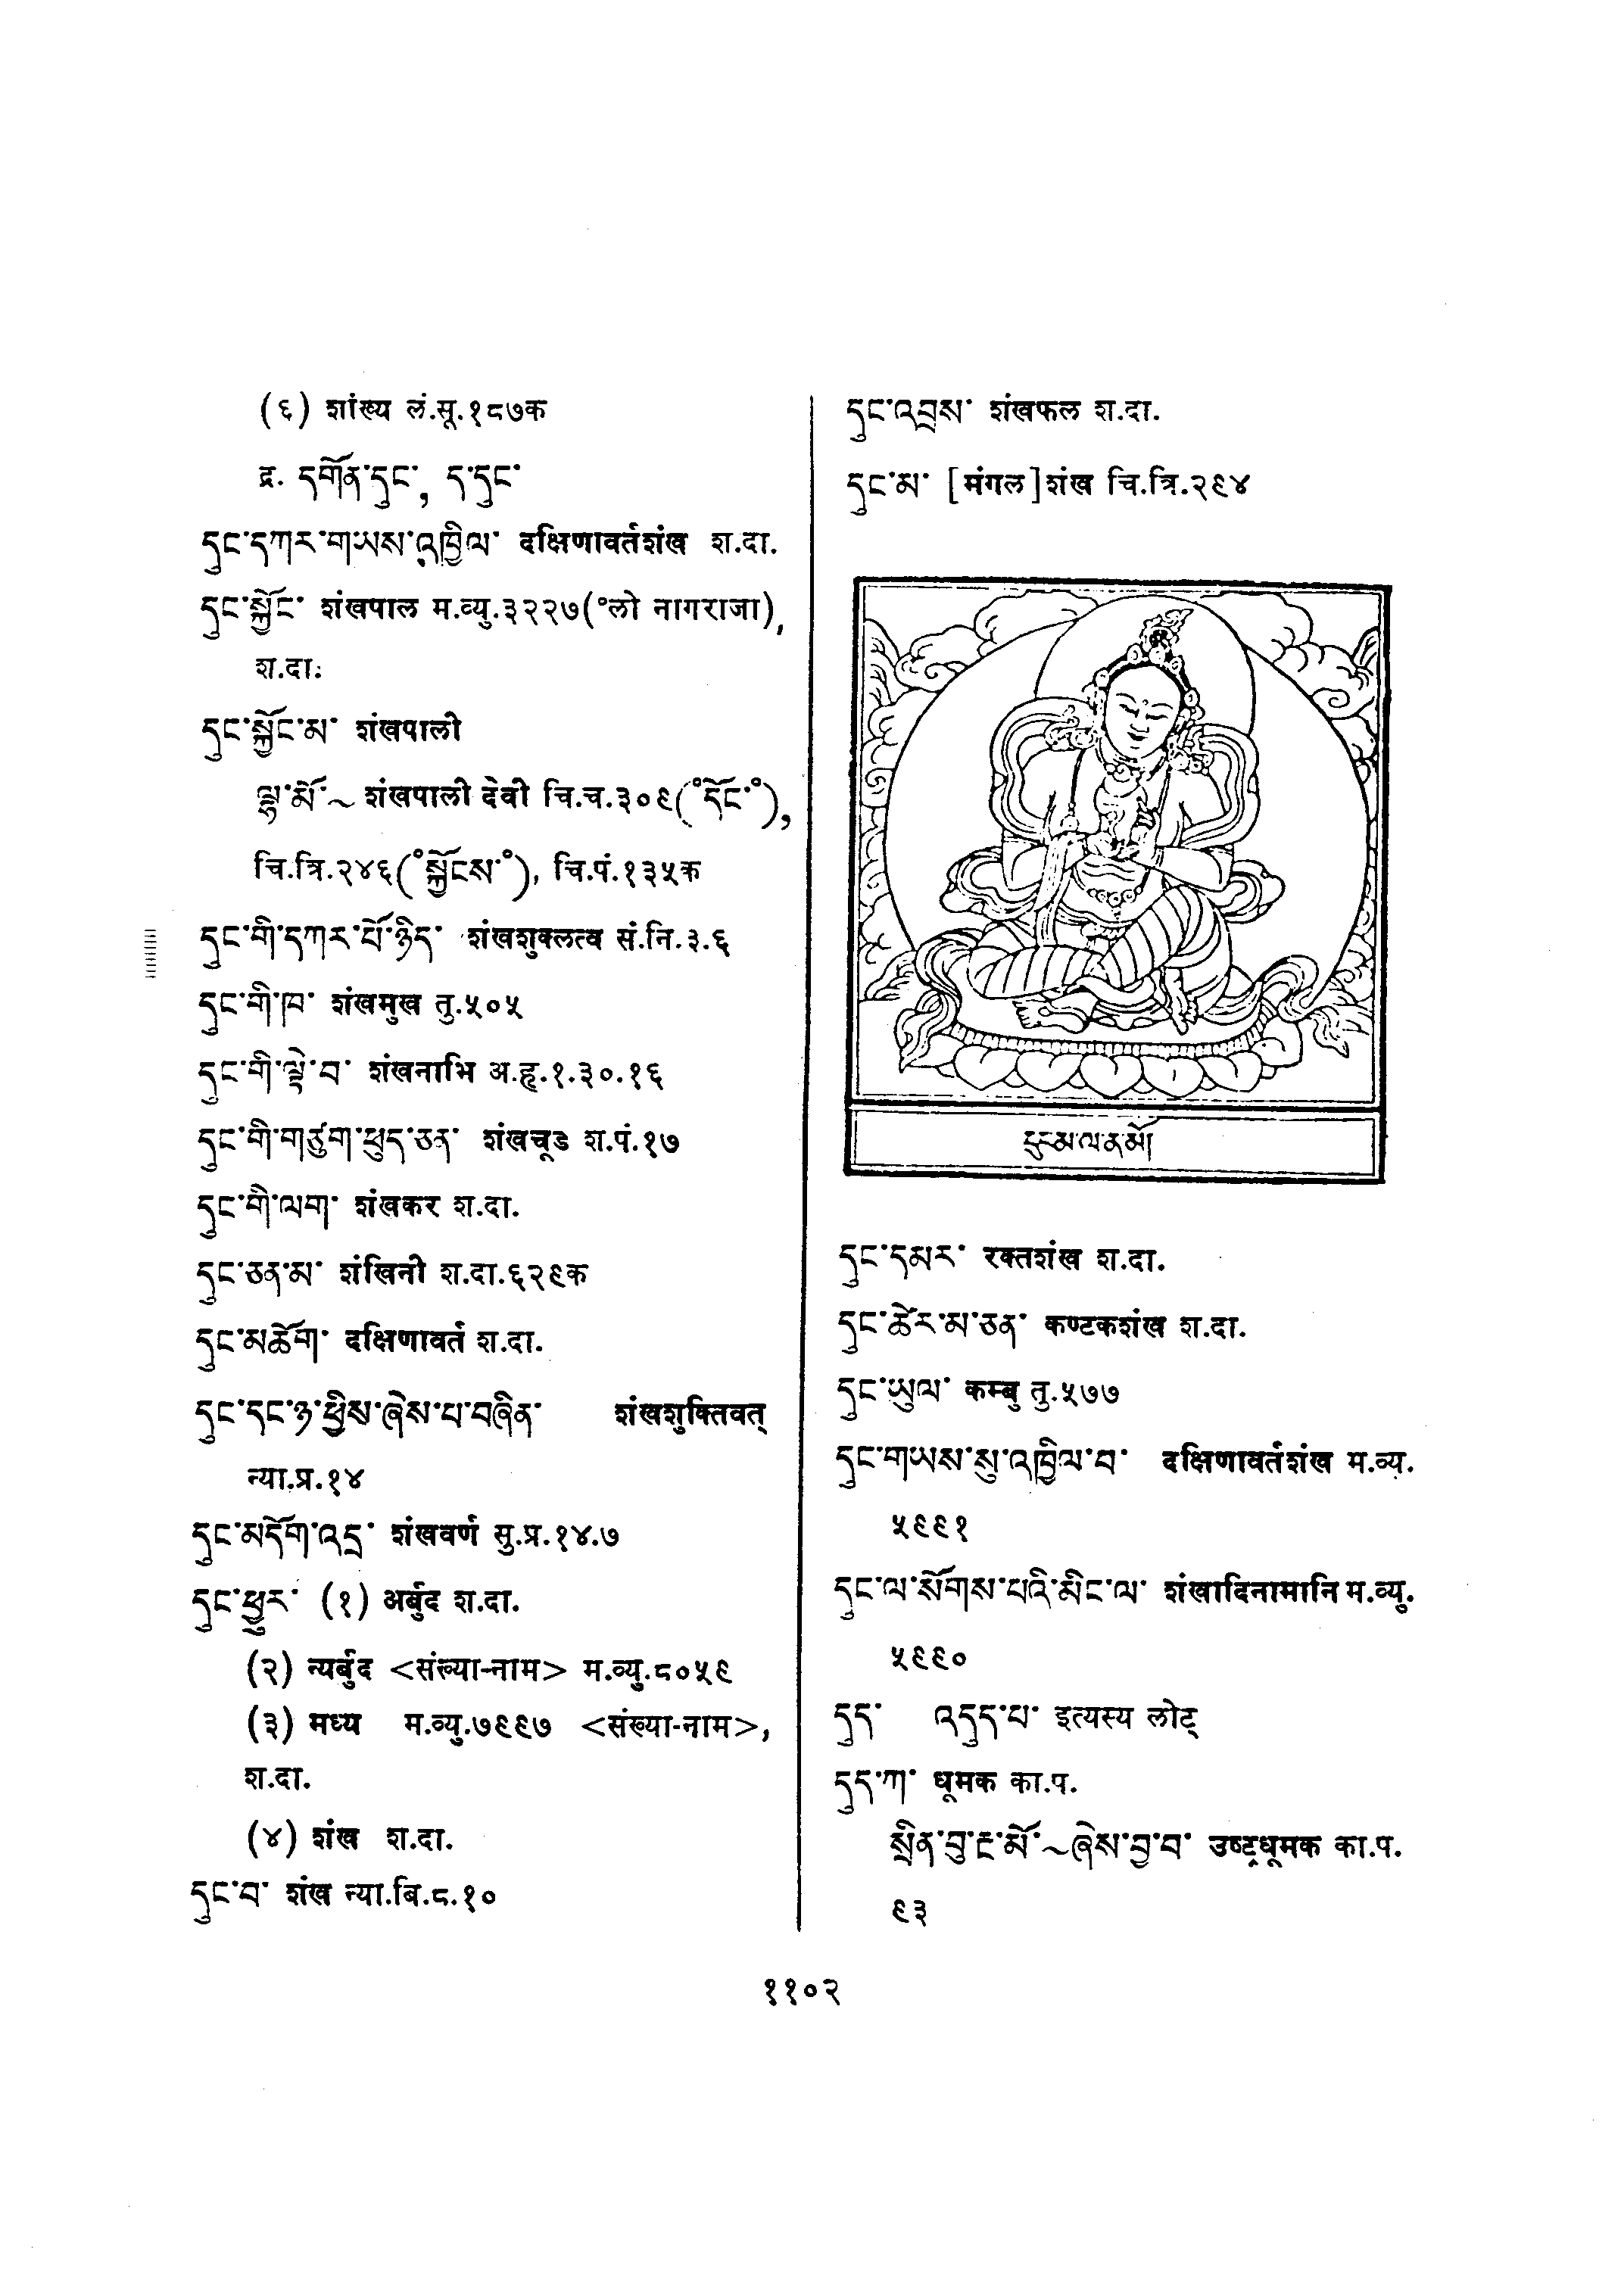 (६) शांख्य लं.सू.१८७क
द्र. དགོན་དུང་, ད་དུང་
དུང་དཀར་གཡས་འཁྱིལ་ दक्षिणावर्तशंख श.दा.
དུང་སྐྱོང་ शंखपाल म.व्यु.३२२७(॰लो नागराजा),
श.दा.
དུང་སྐྱོང་མ་ शंखपाली
ལྷ་མོ་~ शंखपाली देवी चि.च.३०९(॰དོང་॰),
चि.त्रि.२४६(॰སྐྱོངས་॰), चि.पं.१३५क
དུང་གི་དཀར་པོ་ཉིད་ शंखशुक्लत्व सं.नि.३.६
དུང་གི་ཁ་ शंखमुख तु.५०५
དུང་གི་ལྟེ་བ་ शंखनाभि अ.हृ.१.३०.१६
དུང་གི་གཙུག་ཕུད་ཅན་ शंखचूड श.पं.१७
དུང་གི་ལག་ शंखकर श.दा.
དུང་ཅན་མ་ शंखिनी श.दा.६२९क
དུང་མཆོག་ दक्षिणावर्त श.दा.
དུང་དང་ཉ་ཕྱིས་ཞེས་པ་བཞིན་ शंखशुक्तिवत्
न्या.प्र.१४
དུང་མདོག་འདྲ་ शंखवर्ण सु.प्र.१४.७
དུང་ཕྱུར་ (१) अर्बुद श.दा.
(२) न्यर्बुद <संख्या-नाम> म.व्यु.८०५९
(३) मध्य म.व्यु.७९९७ <संख्या-नाम>,
श.दा.
(४) शंख श.दा.
དུང་བ་ शंख न्या.बि.८.१०
དུང་འབྲས་ शंखफल श.दा.
དུང་མ་ [मंगल]शंख चि.त्रि.२९४
དུང་མ་ལ་ན་མོ།
དུང་དམར་ रक्तशंख श.दा.
དུང་ཚེར་མ་ཅན་ कण्टकशंख श.दा.
དུང་ཡུལ་ कम्बु तु.५७७
དུང་གཡས་སུ་འཁྱིལ་བ་ दक्षिणावर्तशंख म.व्यु.
५९९१
དུང་ལ་སོགས་པའི་མིང་ལ་ शंखादिनामानि म.व्यु.
५९९०
དུད་ འདུད་པ་ इत्यस्य लोट्
དུད་ཀ་ धूमक का.प.
སྲིན་བུ་རྔ་མོ་~ཞེས་བྱ་བ་ उष्ट्रधूमक का.प.
९३
११०२